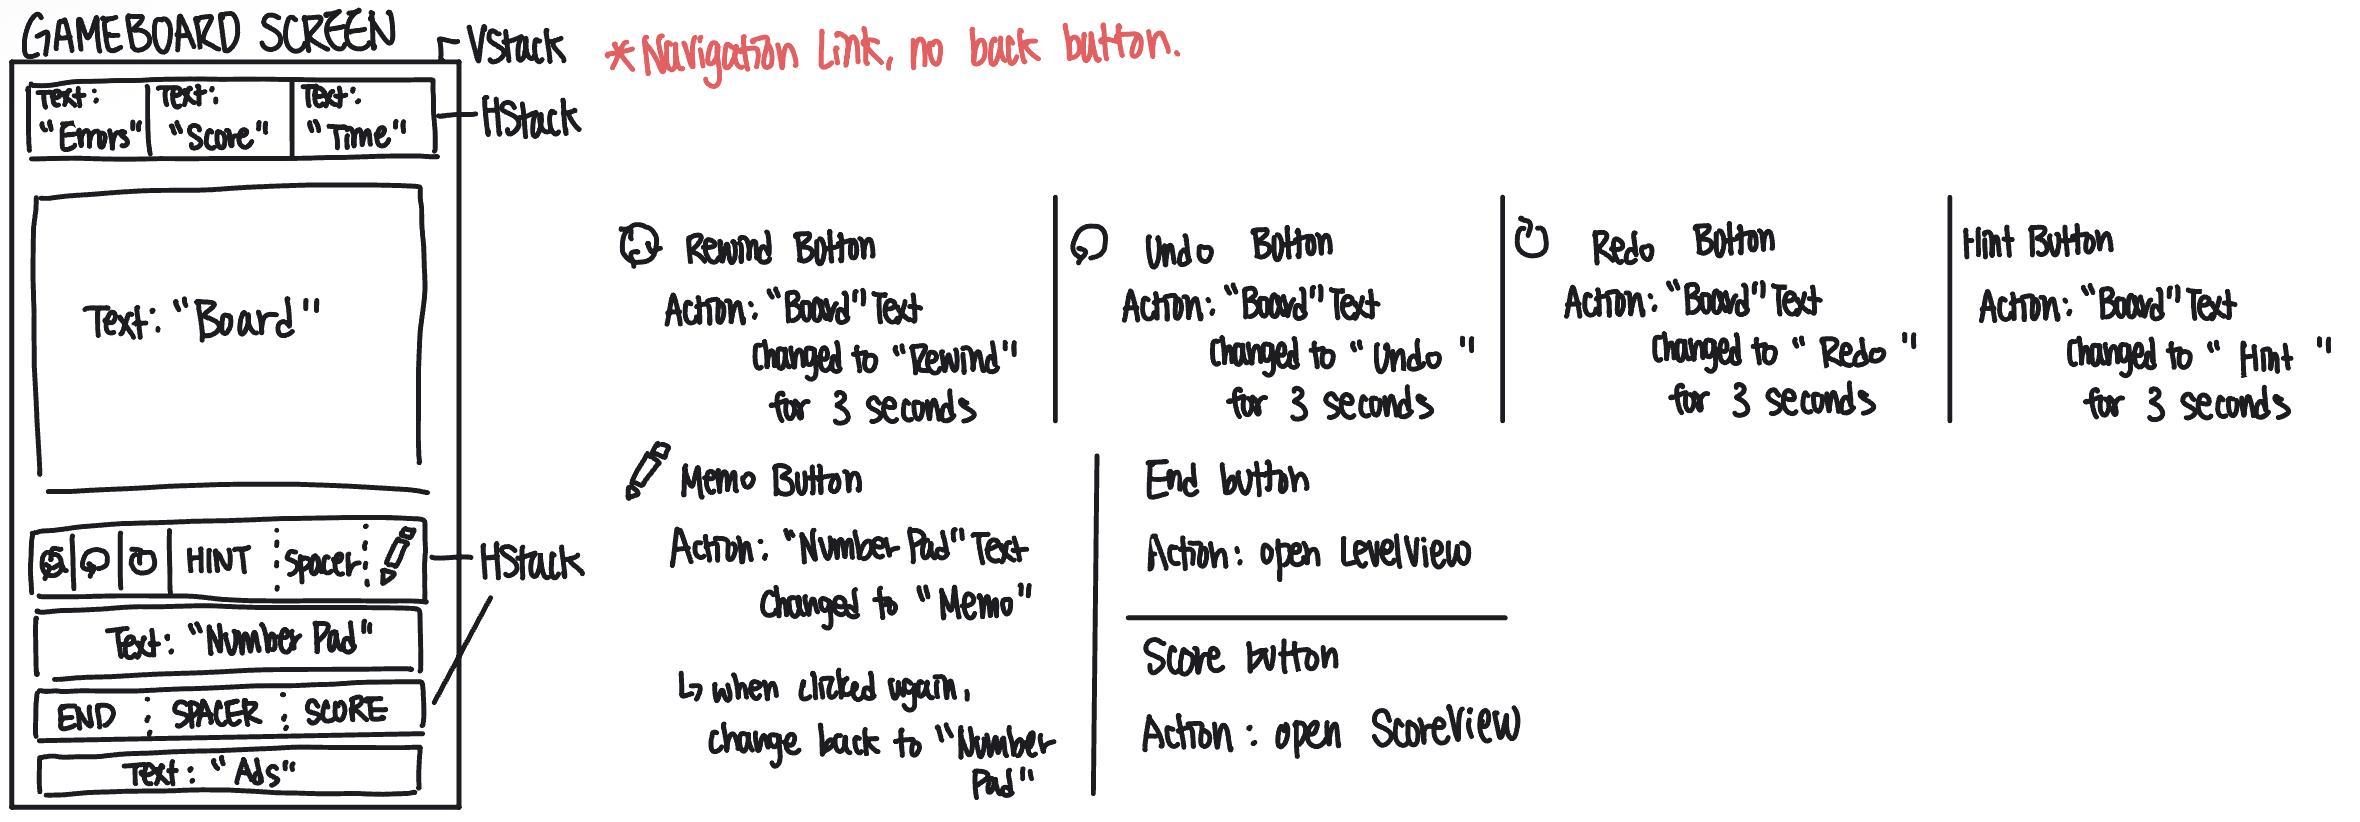 GAMEBOARD SCREEN
VStack
*Navigation Link, no back button.
Text: "Errors"
Text: "Score"
Text: "Time"
HStack
Text: "Board"
HINT
Spacer
HStack
Text: "Number Pad"
END
SPACER
SCORE
Text: "Ads"
Rewind Button
Action: "Board" Text
changed to "Rewind"
for 3 seconds
Undo Button
Action: "Board" Text
changed to "Undo"
for 3 seconds
Redo Button
Action: "Board" Text
changed to "Redo"
for 3 seconds
Hint Button
Action: "Board" Text
changed to "Hint"
for 3 seconds
Memo Button
Action: "Number Pad" Text
changed to "Memo"
↳ when clicked again,
change back to "Number
Pad"
End button
Action: open LevelView
Score button
Action: open ScoreView